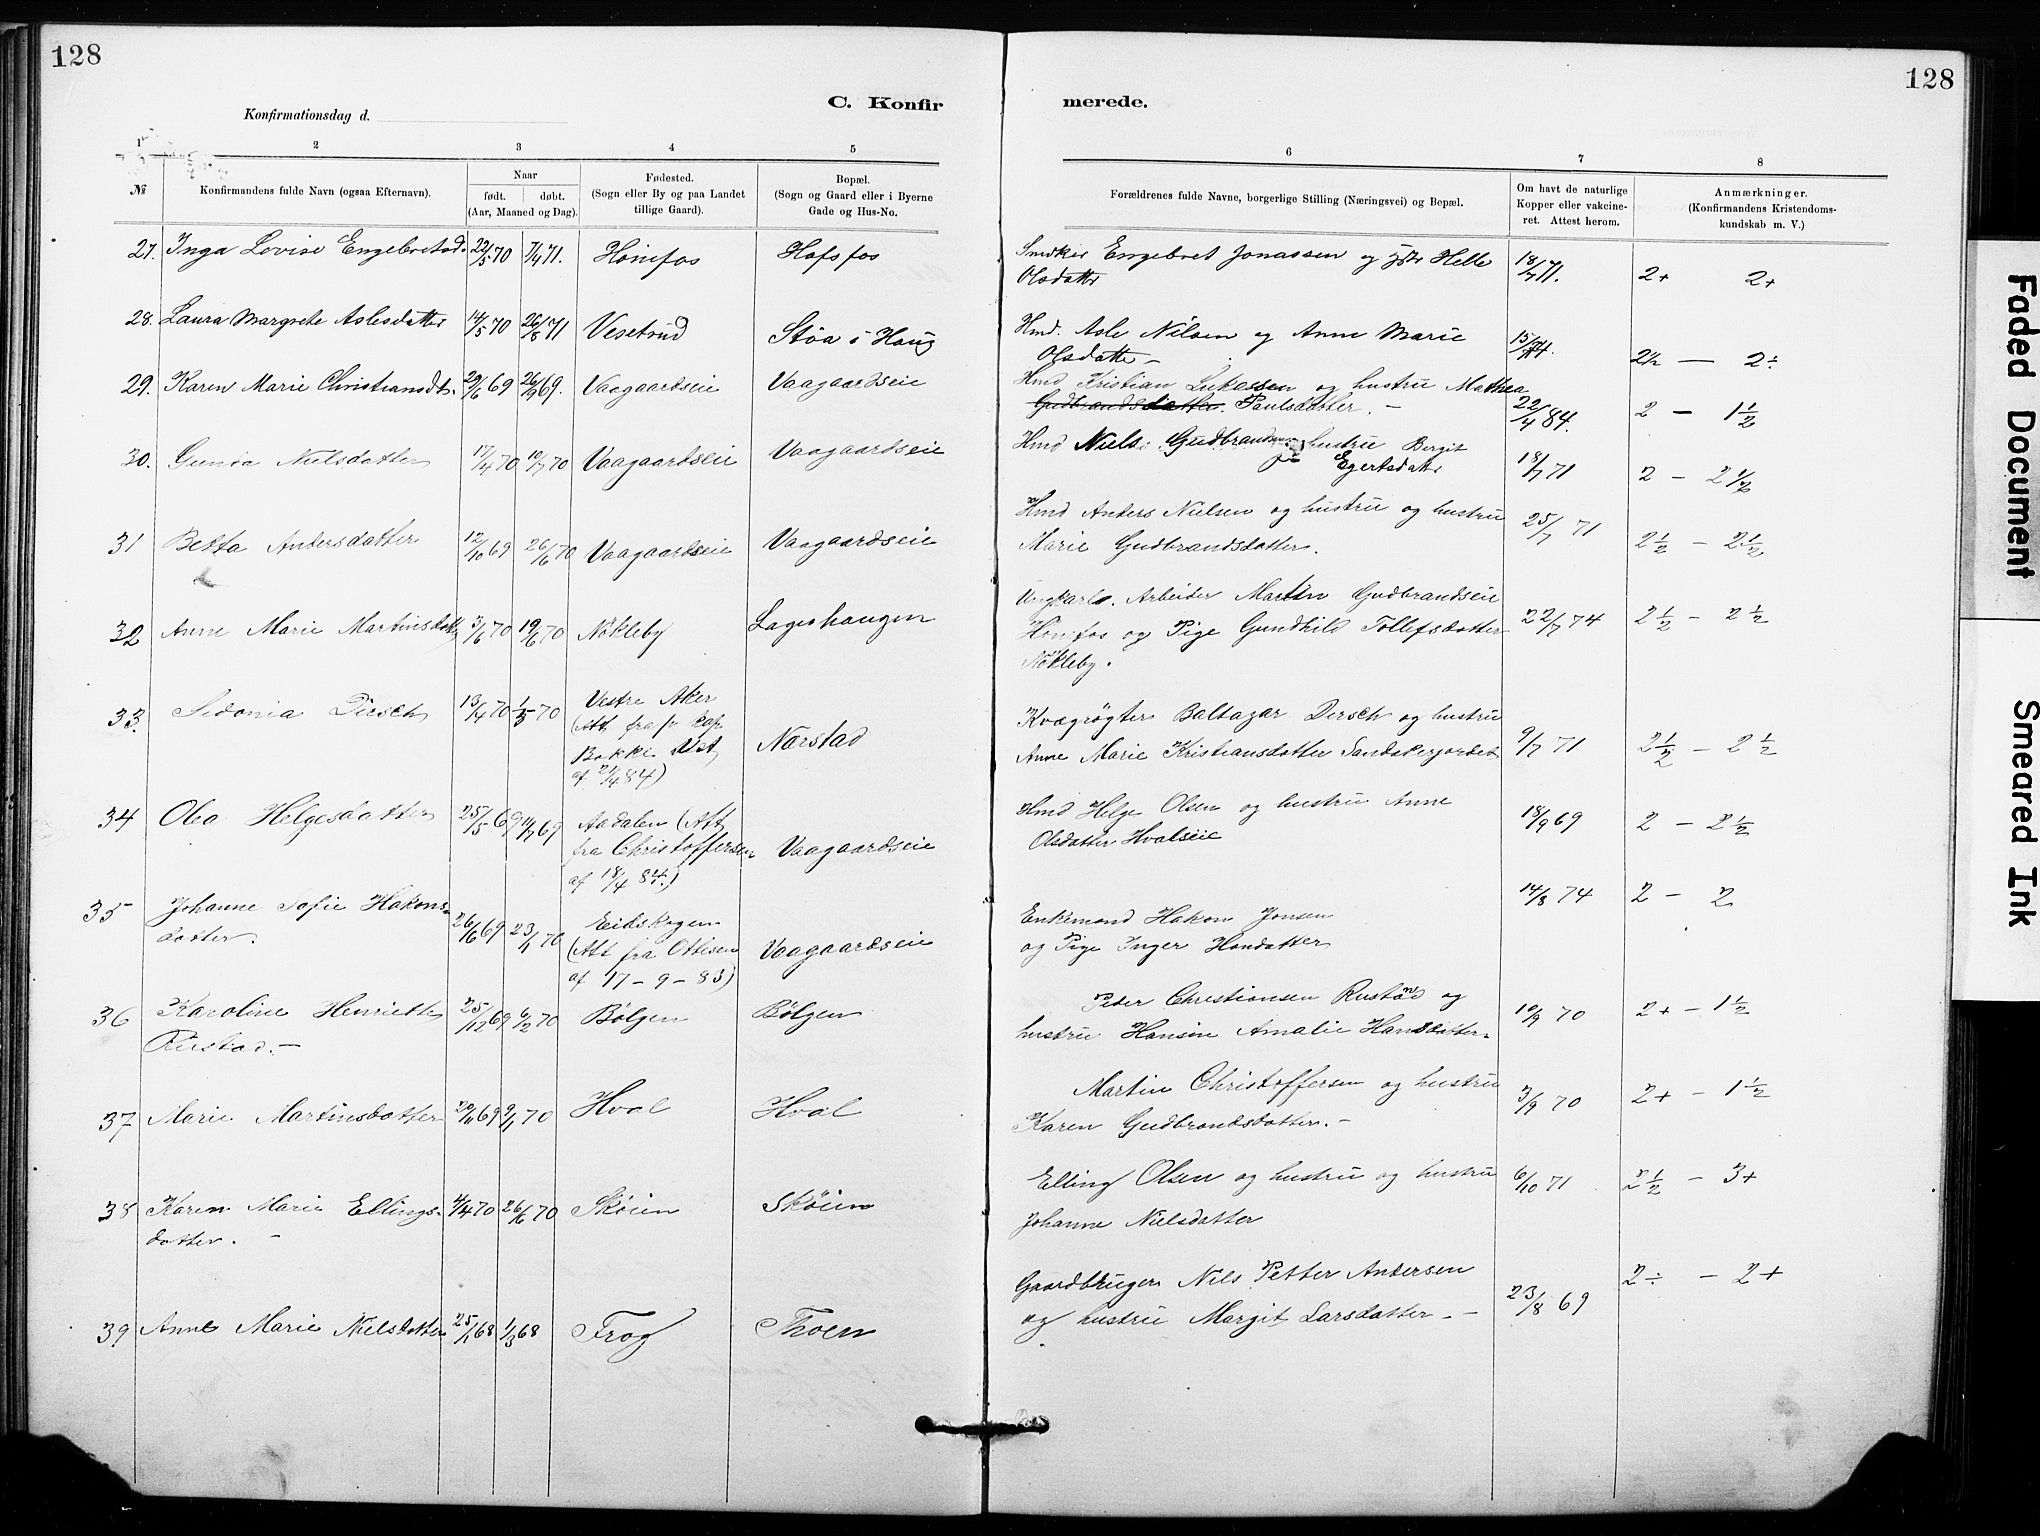 128
128
C. Konfir merede.
Konfirmationsdag d.
1 2 3 4 5 6 7 8
№ Konfirmandens fulde Navn (ogsaa Efternavn).
Naar
født. døbt.
(Aar, Maaned og Dag).
Fødested.
(Sogn eller By og paa Landet
tillige Gaard).
Bopæl.
(Sogn og Gaard eller i Byerne
Gade og Hus-No.
Forældrenes fulde Navne, borgerlige Stilling (Næringsvei) og Bopæl.
Om havt de naturlige
Kopper eller vakcine-
ret. Attest herom.
Anmærkninger.
(Konfirmandens Kristendoms-
kundskab m. V.)
27. Inga Lovise Engebretsd. 22/5 70 7/4 71. Hönefos Hofsfos Engebret Jonassen og Helle 18/7 71. 2+ 2+
Olsdatter
28. Laura Margrethe Aslesdatter 14/5 70 26/8 71 Vesetrud Støa i Haug Hmd. Asle Nilsen og Anne Marie 2½ — 2÷
Olsdatter —
29. Karen Marie Christiansdt. 29/6 69 26/9 69. Vaagaardseie Vaagaardseie Hmd Kristian Lukassen og hustru Mathea
Gudbrandsdatter. Paulsdatter. — 22/4 84. 2 — 1½
30. Gunda Nielsdatter 17/4 70 10/7 70 Vaagaardseie Vaagaardseie Hmd Niels Gudbrandsen hustru Bergit
Egertsdatter 18/7 71 2 — 2½
31 Betta Andersdatter 12/10 69 26/6 70 Vaagaardseie Vaagaardseie Hmd Anders Nielsen og hustru og hustru 25/7 71
Marie Gudbrandsdatter. 2½ — 2½
32 Anne Marie Martinsdatter 3/6 70 19/6 70 Nökleby Lageshaugen Ungkarl. Arbeider Martin Gudbrandseie
Hönefos og Pige Gundhild Tollefsdatter 22/7 74 2½ — 2½
Nökleby.
33. Sidonia Diesch 13/4 70 70 Vestre Aker
(Att fra p. kap.
Bakke
af 21/4 84)
Narstad
Kvægrögter Baltazar Dersch og hustru
Anne Marie Kristiansdatter Sandakerjordet 9/7 71 2½ — 2½
34 Olea Helgesdatter 25/5 69 11/7 69 Aadalen (Att
fra Christoffersen
af 18/4 84.)
Vaagaardseie
Hmd Helge Olsen og hustru Anne
Olsdatter Hvalseie 18/9 69 2 — 2½
35 Johanne Sofie Hakons-
datter. 26/6 69 23/1 70 Eidskogen
(Att fra Ottesen
af 17 – 9 – 83)
Vaagaardseie
Enkemand Hakon Jonsen
og Pige Inger Hansdatter 14/8 74 2 — 2
36 Karoline Henriette
Rustad. — 25/12 69 6/2 70 Bølgen Bølgen Peder Christiansen Rustad og
hustru Hansine Amalie Hansdatter. 10/9 70 2+ — 1½
37 Marie Martinsdatter 20/11 69 9/1 70 Hval Hval Martin Christoffersen og hustru
Karen Gudbrandsdatter. — 3/9 70 2+ — 1½
38 Karen Marie Ellings-
datter. — 4/4 70 26/6 70 Skøien Skøien Elling Olsen og hustru og hustru
Johanne Nielsdatter 6/10 71 2½ — 3+
39 Anne Marie Nielsdatter 25/1 68 1/3 68 Frog Thoen Gaardbruger Nils Petter Andersen
og hustru Margit Larsdatter. — 23/8 69 2÷ — 2+
Faded Document
Smeared Ink